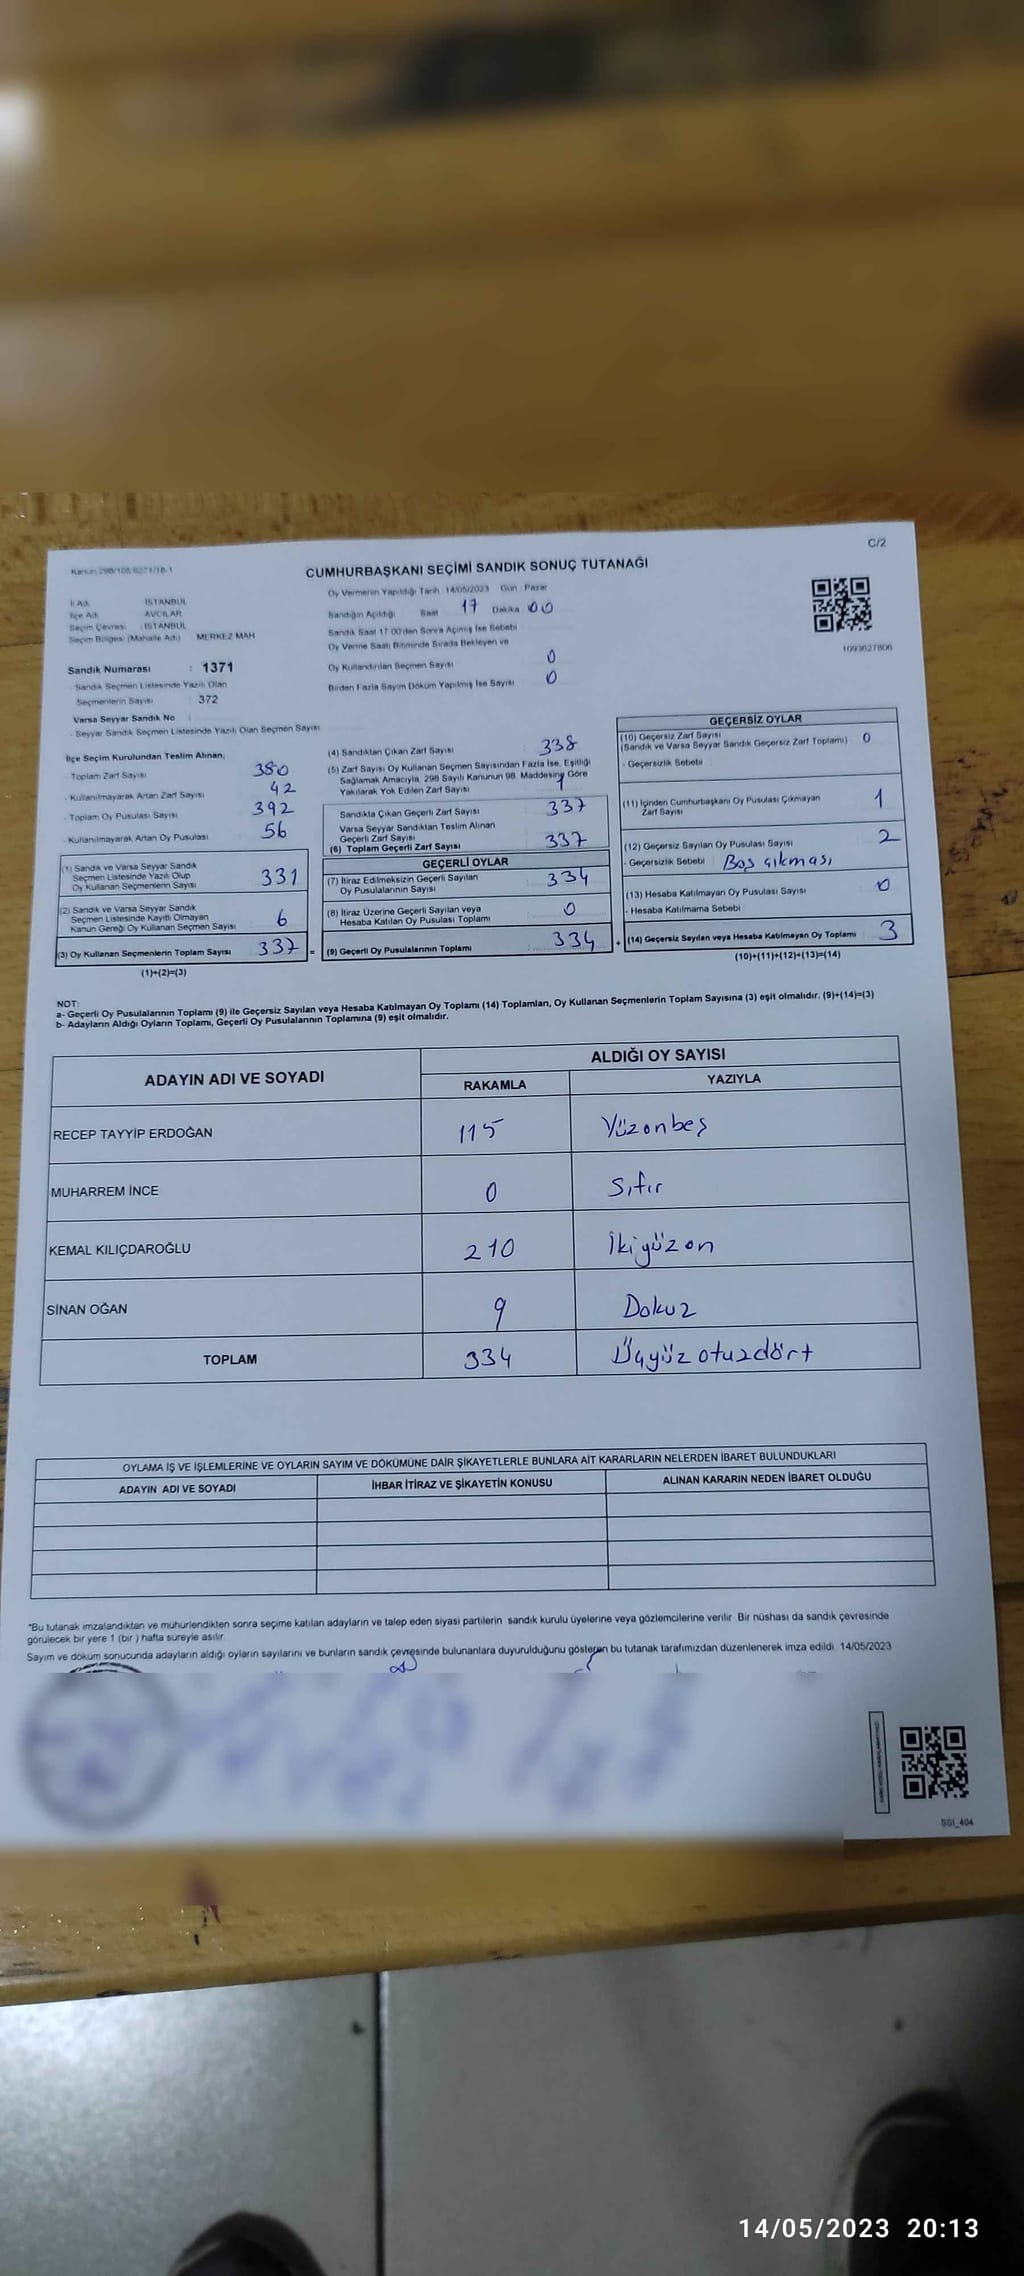 C/2
Kanun 298/105 6271/18-1
CUMHURBAŞKANI SEÇİMİ SANDIK SONUÇ TUTANAĞI
İl Adı : İSTANBUL
İlçe Adı : AVCILAR
Seçim Çevresi : İSTANBUL
Seçim Bölgesi (Mahalle Adı) MERKEZ MAH
Sandık Numarası : 1371
- Sandık Seçmen Listesinde Yazılı Olan
Seçmenlerin Sayısı : 372
Varsa Seyyar Sandık No :
- Seyyar Sandık Seçmen Listesinde Yazılı Olan Seçmen Sayısı
Oy Vermenin Yapıldığı Tarih 14/05/2023 Gün Pazar
Sandığın Açıldığı Saat 17 Dakika 00
Sandık Saat 17:00'den Sonra Açılmış İse Sebebi
Oy Verme Saati Bitiminde Sırada Bekleyen ve
Oy Kullandırılan Seçmen Sayısı 0
Birden Fazla Sayım Döküm Yapılmış İse Sayısı 0
1093627806
İlçe Seçim Kurulundan Teslim Alınan;
- Toplam Zarf Sayısı 380
- Kullanılmayarak Artan Zarf Sayısı 42
- Toplam Oy Pusulası Sayısı 392
- Kullanılmayarak Artan Oy Pusulası 56
(1) Sandık ve Varsa Seyyar Sandık
Seçmen Listesinde Yazılı Olup
Oy Kullanan Seçmenlerin Sayısı 331
(2) Sandık ve Varsa Seyyar Sandık
Seçmen Listesinde Kayıtlı Olmayan
Kanun Gereği Oy Kullanan Seçmen Sayısı 6
(3) Oy Kullanan Seçmenlerin Toplam Sayısı 337 =
(1)+(2)=(3)
(4) Sandıktan Çıkan Zarf Sayısı 338
(5) Zarf Sayısı Oy Kullanan Seçmen Sayısından Fazla İse, Eşitliği
Sağlamak Amacıyla, 298 Sayılı Kanunun 98. Maddesine Göre
Yakılarak Yok Edilen Zarf Sayısı 1
Sandıkta Çıkan Geçerli Zarf Sayısı 337
Varsa Seyyar Sandıktan Teslim Alınan
Geçerli Zarf Sayısı
(6) Toplam Geçerli Zarf Sayısı 337
GEÇERLİ OYLAR
(7) İtiraz Edilmeksizin Geçerli Sayılan
Oy Pusulalarının Sayısı 334
(8) İtiraz Üzerine Geçerli Sayılan veya
Hesaba Katılan Oy Pusulası Toplamı 0
(9) Geçerli Oy Pusulalarının Toplamı 334 +
GEÇERSİZ OYLAR
(10) Geçersiz Zarf Sayısı
(Sandık ve Varsa Seyyar Sandık Geçersiz Zarf Toplamı) 0
- Geçersizlik Sebebi
(11) İçinden Cumhurbaşkanı Oy Pusulası Çıkmayan
Zarf Sayısı 1
(12) Geçersiz Sayılan Oy Pusulası Sayısı 2
- Geçersizlik Sebebi Boş çıkması
(13) Hesaba Katılmayan Oy Pusulası Sayısı 0
- Hesaba Katılmama Sebebi
(14) Geçersiz Sayılan veya Hesaba Katılmayan Oy Toplamı 3
(10)+(11)+(12)+(13)=(14)
NOT:
a- Geçerli Oy Pusulalarının Toplamı (9) ile Geçersiz Sayılan veya Hesaba Katılmayan Oy Toplamı (14) Toplamları, Oy Kullanan Seçmenlerin Toplam Sayısına (3) eşit olmalıdır. (9)+(14)=(3)
b- Adayların Aldığı Oyların Toplamı, Geçerli Oy Pusulalarının Toplamına (9) eşit olmalıdır.
ADAYIN ADI VE SOYADI ALDIĞI OY SAYISI
RAKAMLA YAZIYLA
RECEP TAYYİP ERDOĞAN 115 Yüzonbeş
MUHARREM İNCE 0 Sıfır
KEMAL KILIÇDAROĞLU 210 İkiyüzon
SİNAN OĞAN 9 Dokuz
TOPLAM 334 Üçyüzotuzdört
OYLAMA İŞ VE İŞLEMLERİNE VE OYLARIN SAYIM VE DÖKÜMÜNE DAİR ŞİKAYETLERLE BUNLARA AİT KARARLARIN NELERDEN İBARET BULUNDUKLARI
ADAYIN ADI VE SOYADI İHBAR İTİRAZ VE ŞİKAYETİN KONUSU ALINAN KARARIN NEDEN İBARET OLDUĞU
*Bu tutanak imzalandıktan ve mühürlendikten sonra seçime katılan adayların ve talep eden siyasi partilerin sandık kurulu üyelerine veya gözlemcilerine verilir. Bir nüshası da sandık çevresinde
görülecek bir yere 1 (bir) hafta süreyle asılır.
Sayım ve döküm sonucunda adayların aldığı oyların sayılarını ve bunların sandık çevresinde bulunanlara duyurulduğunu gösteren bu tutanak tarafımızdan düzenlenerek imza edildi. 14/05/2023
SGI_404
14/05/2023 20:13